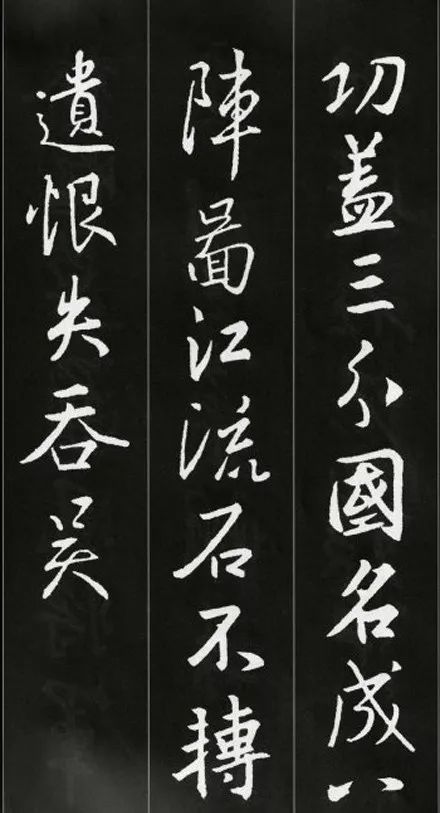 功盖三分國名成八
陣啚江流石不轉
遺恨失吞吳